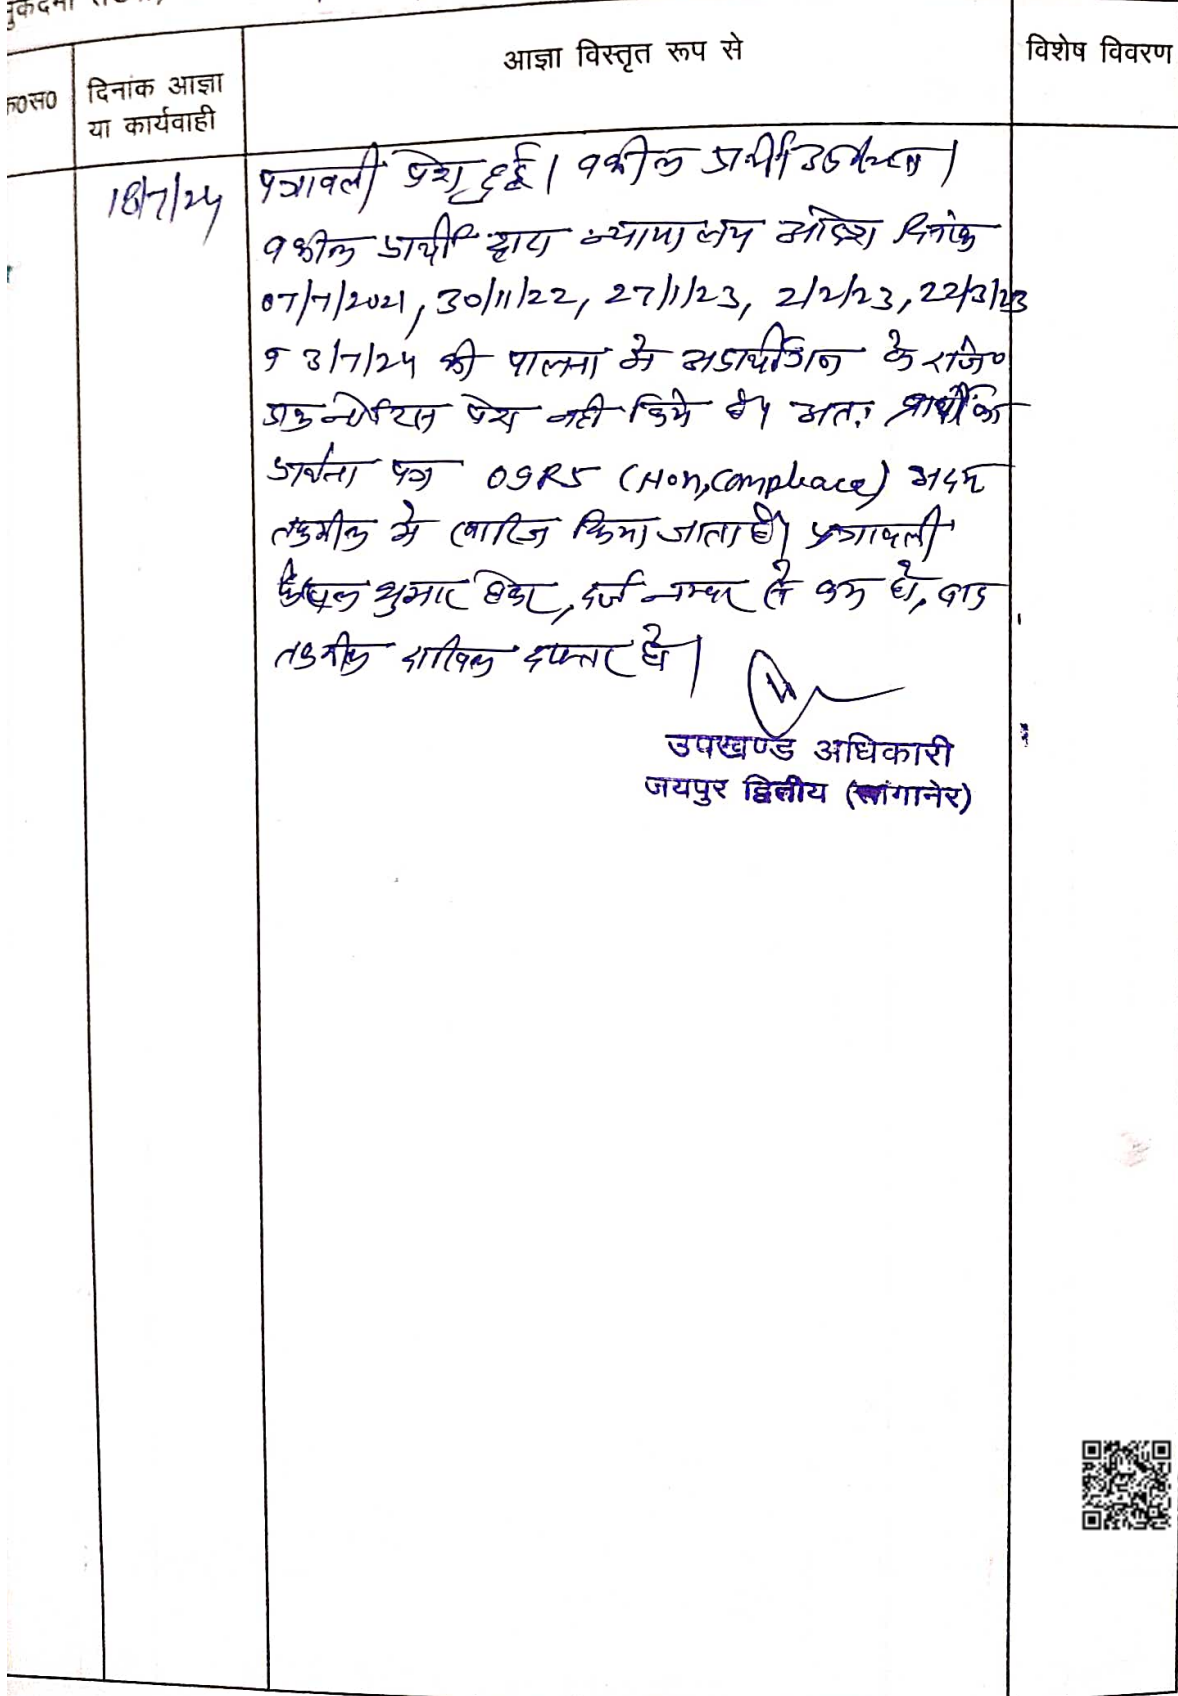 आज्ञा विस्तृत रूप से
विशेष विवरण
क0स0
दिनांक आज्ञा
या कार्यवाही
18/7/24
पत्रावली पेश हुई। वकील प्रार्थी उपस्थित।
वकील प्रार्थी द्वारा न्यायालय आदेश दिनांक
07/7/2021, 30/11/22, 27/1/23, 2/2/23, 22/3/23
व 3/7/24 की पालना मे अप्रार्थीगण के रजि०
पेश नही किये है। अतः प्रार्थी के
प्रार्थना पत्र O9R5 (Non, Compliace) अदम
तकमील मे खारिज किया जाता है। पत्रावली
फैसल शुमार होकर, दर्ज नम्बर से कम हो, बाद
तकमील दाखिल दफ्तर हो।
उपखण्ड अधिकारी
जयपुर द्वितीय (सांगानेर)